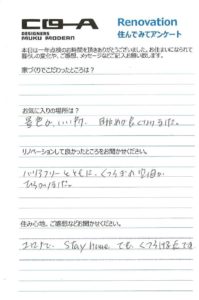 DESIGNERS
MUKU MODERN
Renovation
住んでみてアンケート
本日は一年点検のお時間を頂きありがとうございました。お住まいになられて
暮らしの変化や、ご感想、メッセージなどご記入お願い致します。
家づくりでこだわったところは？
お気に入りの場所は？
景色が、いい所、
リノベーションして良かったところをお聞かせください。
バリアフリーとともに、くつろぎの空間が
ひろがりました。
住み心地、ご感想などお聞かせください。
コロナで、Stay homeでも、くつろげる